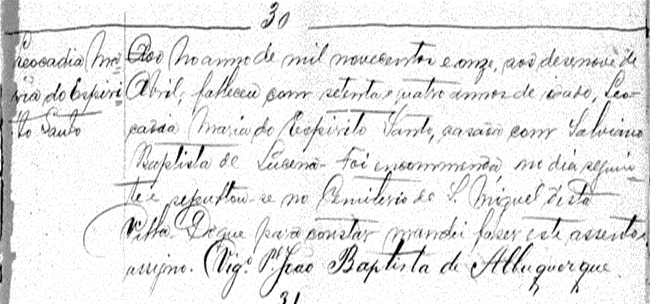 30
Leocadia Ma
ria do Espiri
to Santo
Aos No anno de mil novecentos e onze, aos desenove de
Abril, falleceu com setenta e quatro annos de idade, Leo-
cadia Maria do Espirito Santo, casada com Salviano
Baptista de Lucena. Foi incommenda no dia seguin-
te e sepultou-se no Cemiterio de S. Miguel desta
Villa. Do que para constar mandei faser este assento e
assigno. O Vigº Pe João Baptista de Albuquerque
31